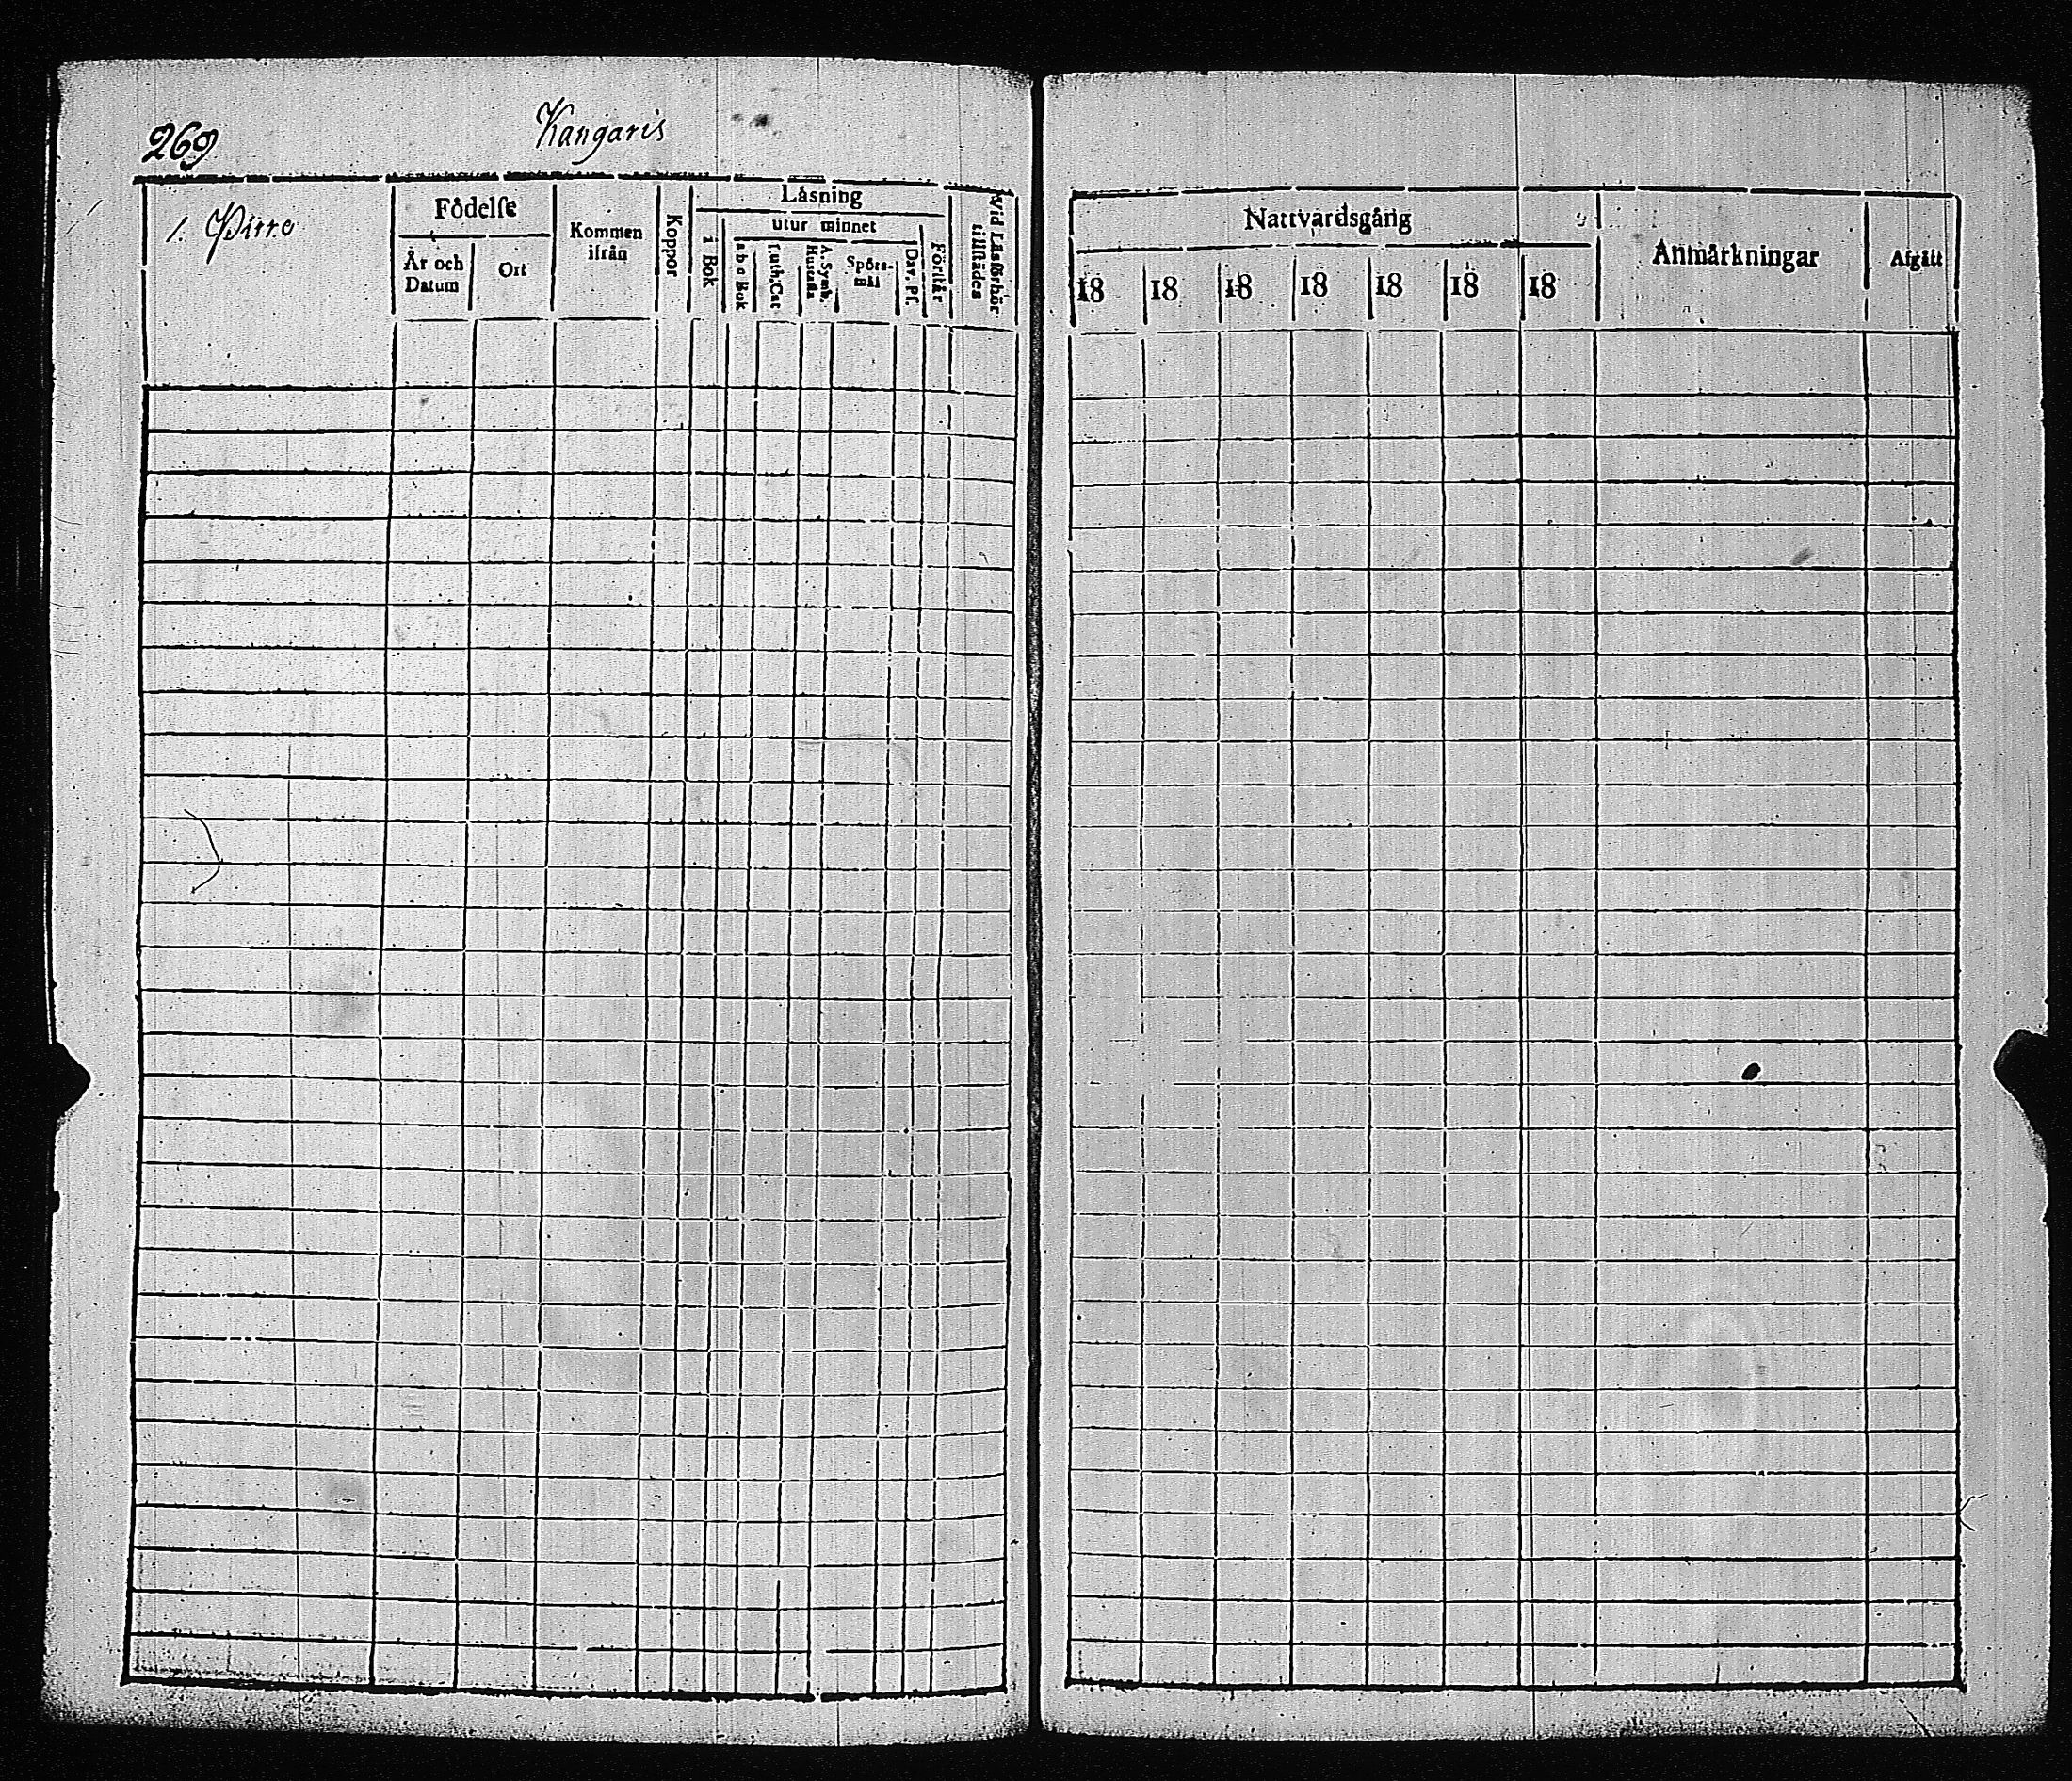 269
Kangaris
1. Pirre
Födelse
År och Datum
Ort
Kommen ifrån
Koppor
Läsning
i Bok
utur minnet
a b c Bok
Luth: Cat
A. Symb. Hustafla
Spörs-mål
Dav. Ps.
Förstår
Vid Läsförhör tillstädes
Nattvardsgång
18 18 18 18 18 18 18
Anmärkningar
Afgått